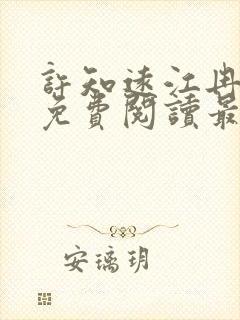 許知遠江冉
免費閱讀最
安璃玥